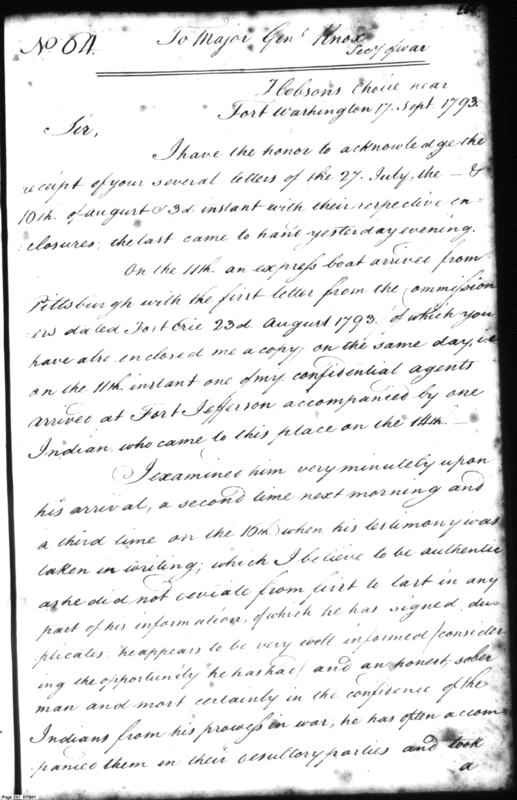 No 64.
To Major Genl. Knox
Secy of War
Hobsons Choice near
Fort Washington 17. Sept 1793.
Sir,
I have the honor to acknowledge the
receipt of your several letters of the 27. July, the — &
10th. of august & 3d instant with their respective en-
closures; the last came to hand yesterday evening.
On the 11th. an express boat arrived from
Pittsburgh with the first letter from the Commission
ers dated Fort Erie 23d August 1793 (of which you
have also enclosed me a copy) on the same day, i.e
on the 11th instant one of my confidential agents
arrived at Fort Jefferson accompanied by one
Indian who came to this place on the 14th. —
I examined him very minutely upon
his arrival, a second time next morning and
a third time on the 16th when his testimony was
taken in writing; which I believe to be authentic
as he did not deviate from first to last in any
part of his information, of which he has signed du-
plicates: he appears to be very well informed (consider
ing the opportunity he has had) and an honest, sober
man and most certainly in the confidence of the
Indians from his prowess in war, he has often accom-
panied them in their desultory parties and took
a
Page 257 DTB#1